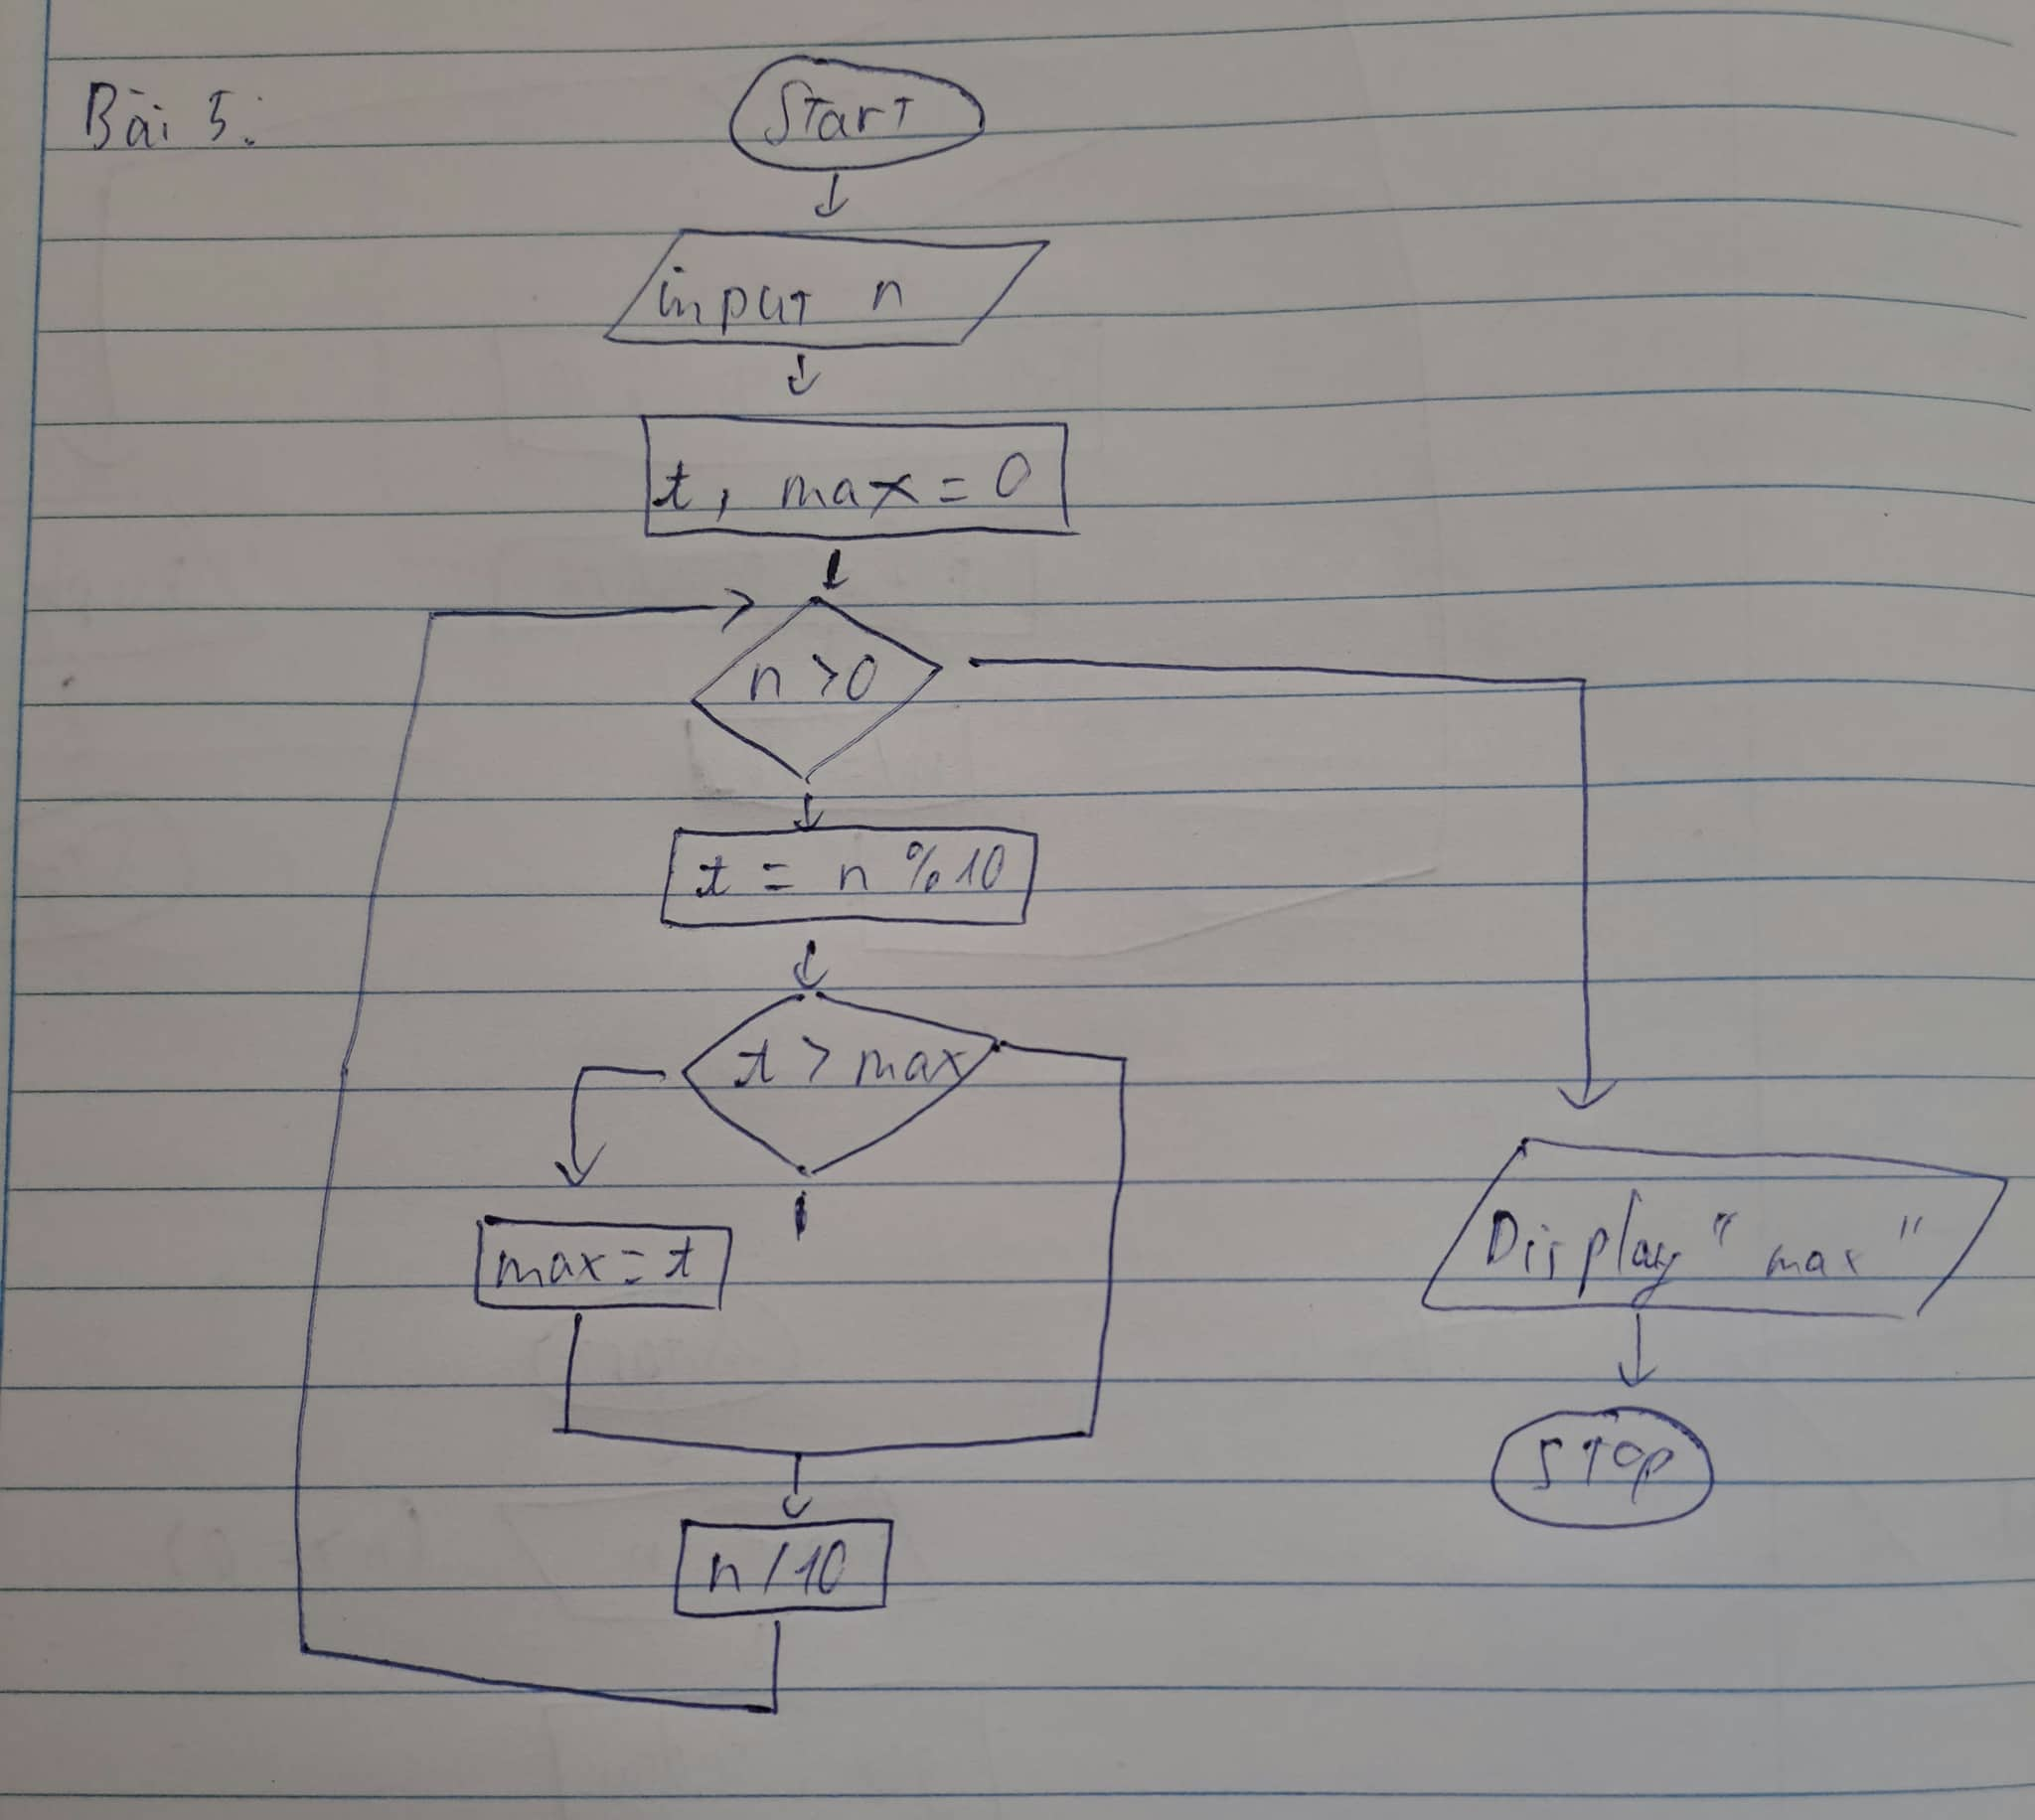 Bài 5:
Start
input n
t, max = 0
n > 0
t = n % 10
t > max
max = t
Display " max "
STOP
n / 10